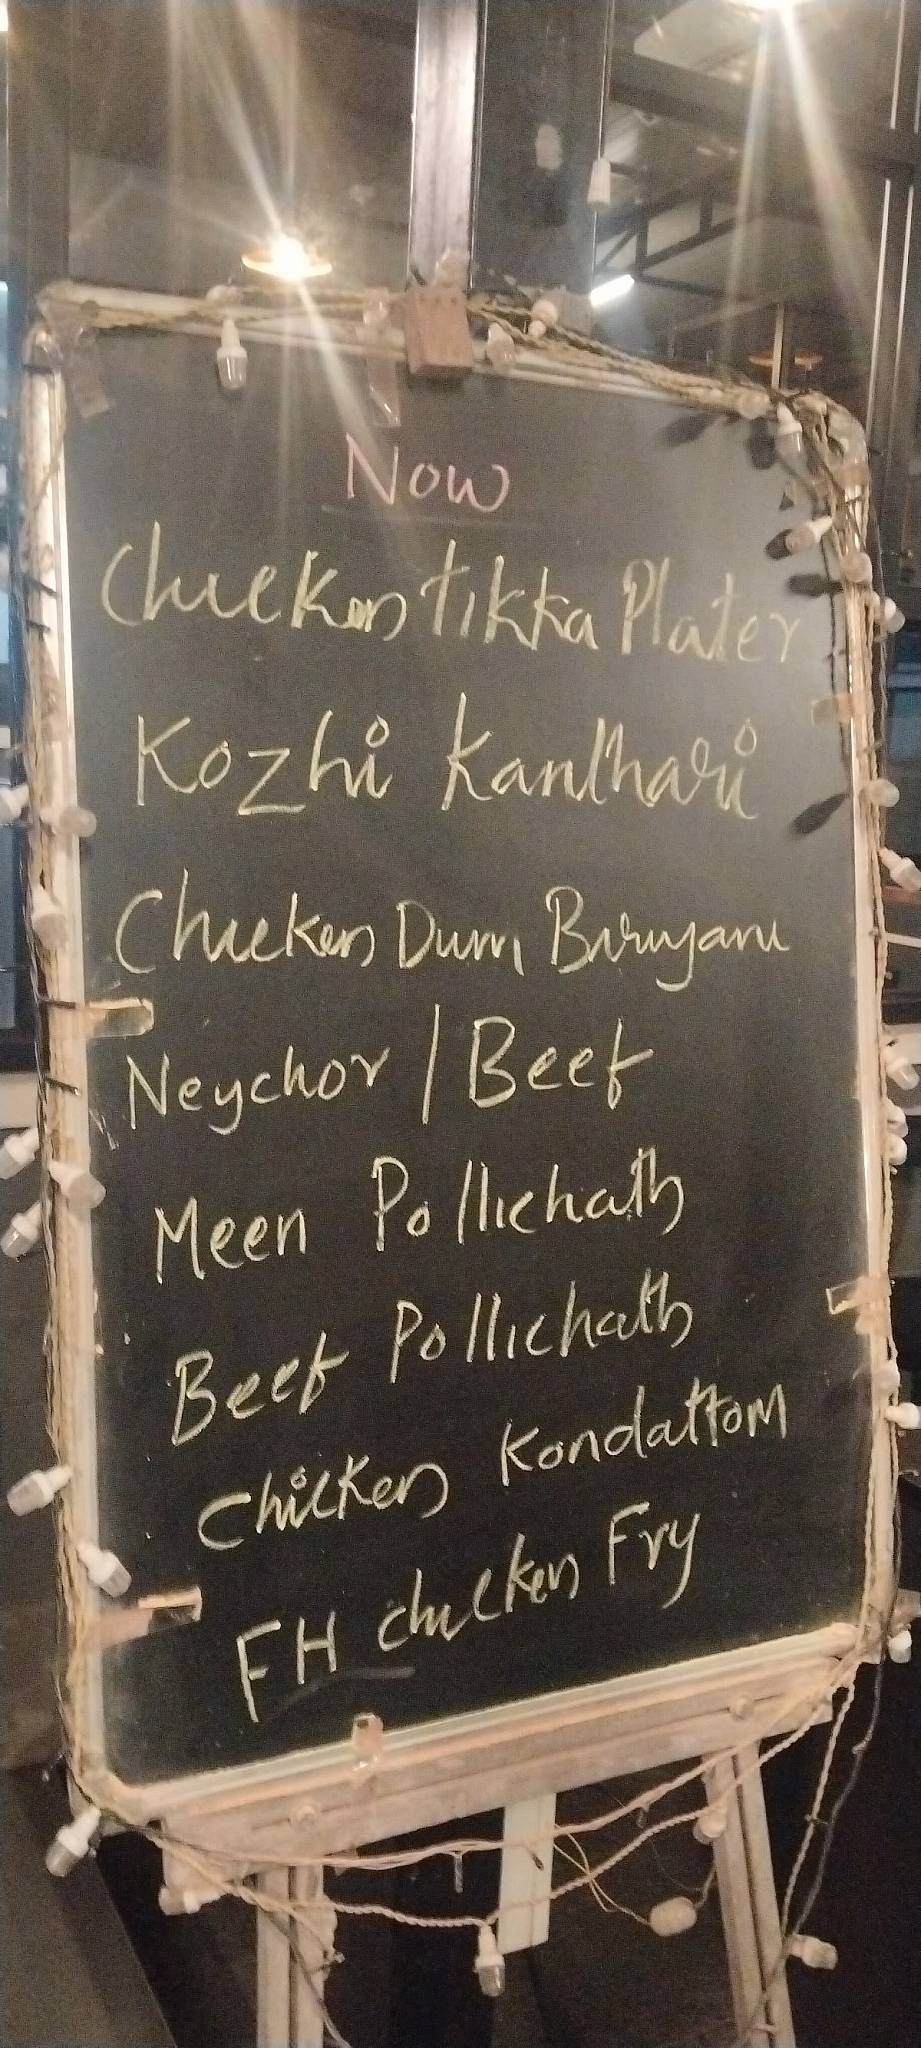 Now
Chicken tikka Plater
Kozhi Kanthari
Chicken Dum Biriyani
Neychor / Beef
Meen Pollichath
Beef Pollichath
Chicken Kondattom
FH chicken Fry